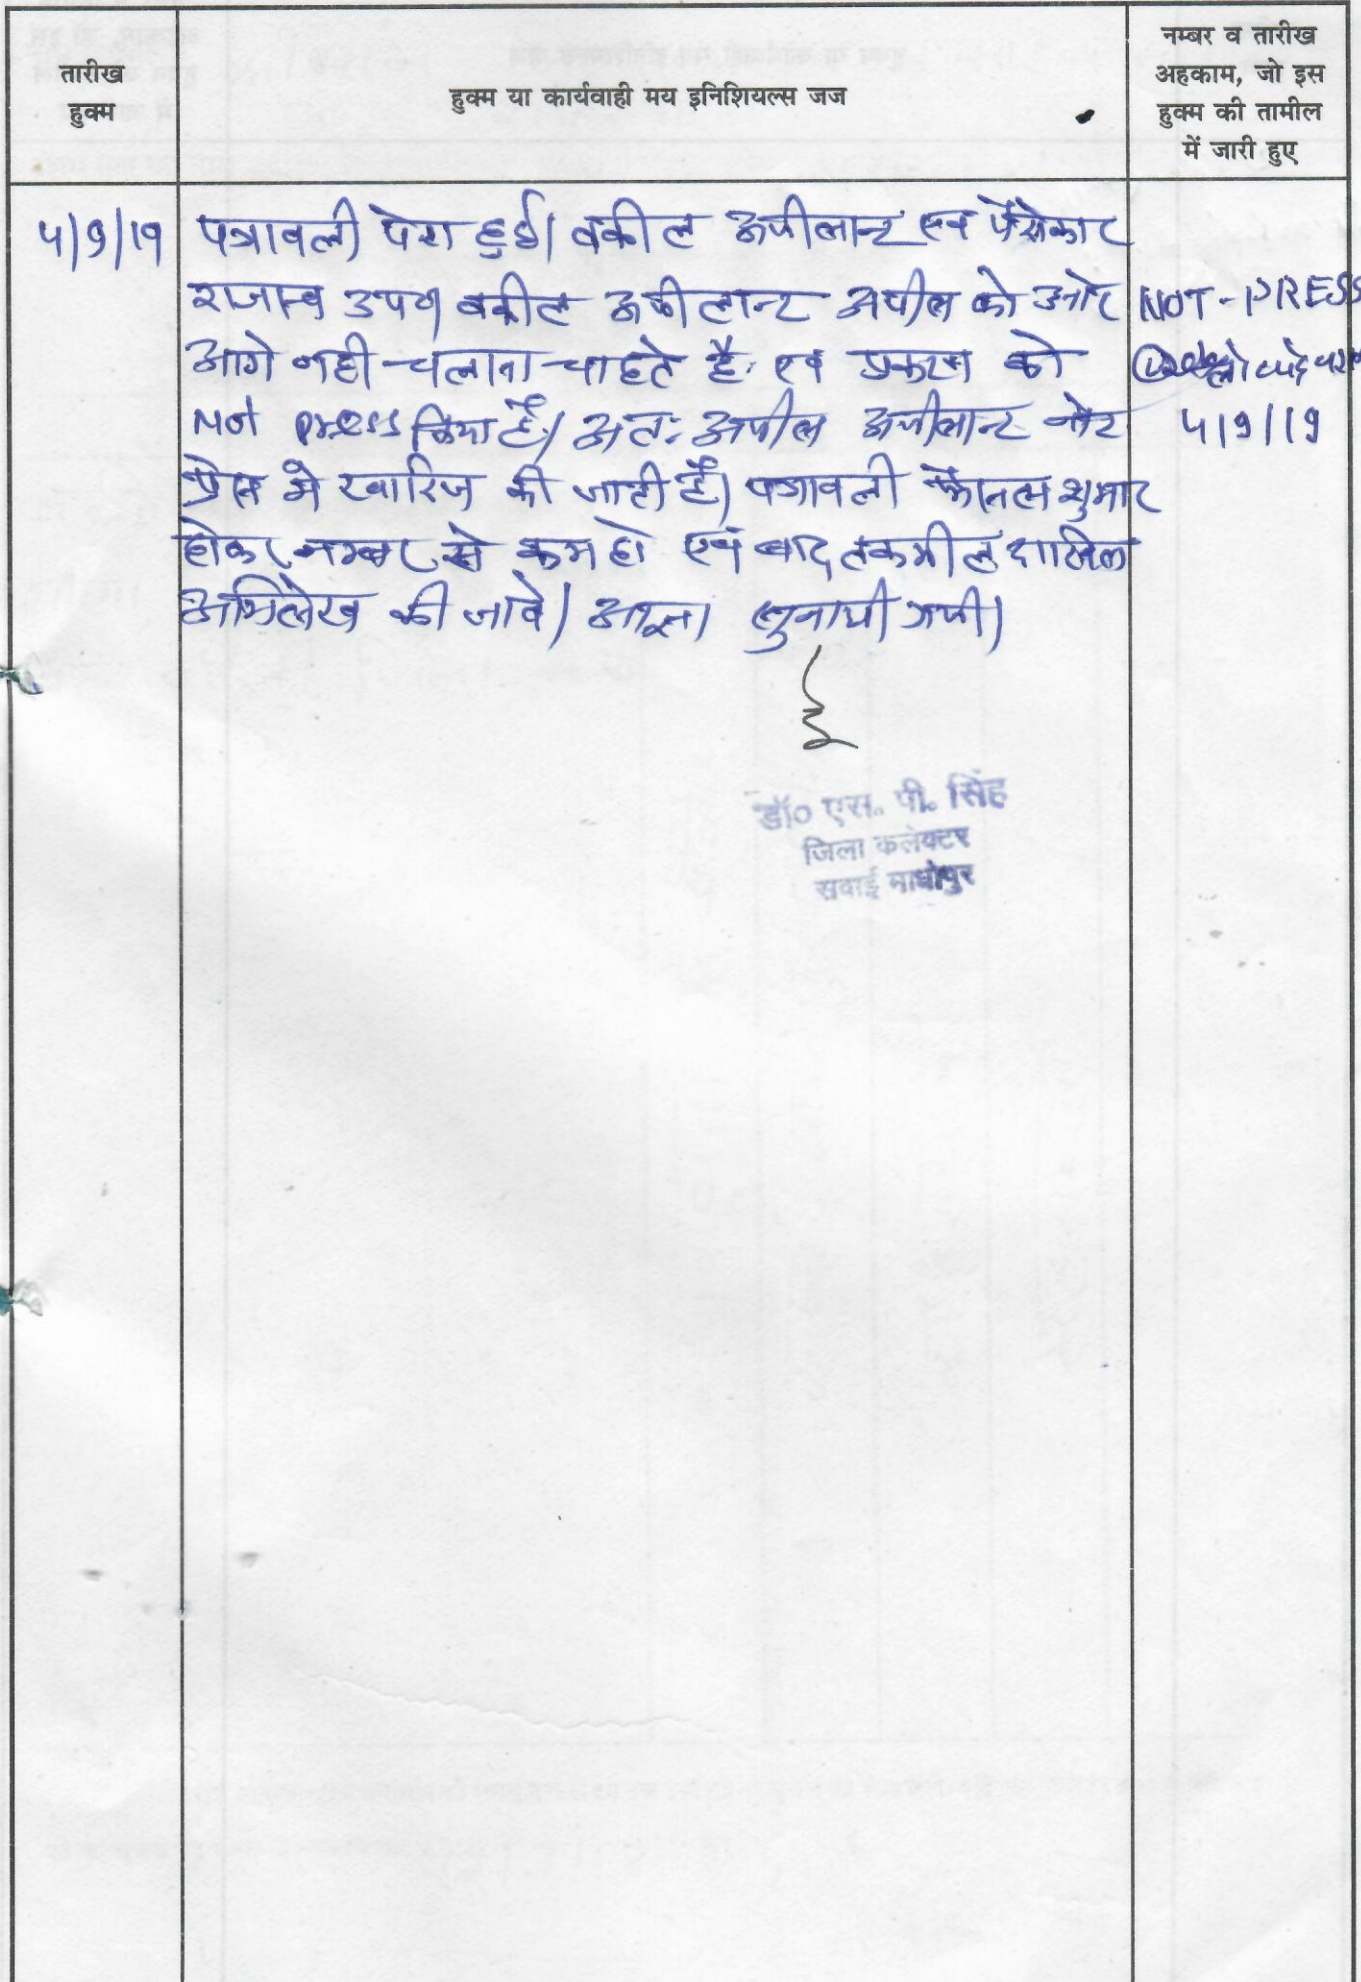 तारीख
हुक्म
हुक्म या कार्यवाही मय इनिशियल्स जज
नम्बर व तारीख
अहकाम, जो इस
हुक्म की तामील
में जारी हुए
4/9/19 पत्रावली पेश हुई। वकील अपीलान्ट एवं पेरोकार
राजस्व उप०। वकील अपीलान्ट अपील को और
आगे नही चलाना चाहते है एवं प्रकरण को
Not press किया है। अतः अपील अपीलान्ट नोट
प्रेस मे खारिज की जाती है। पत्रावली फैसल शुमार
होकर नम्बर से कम हो एवं बाद तकमील दाखिल
अभिलेख की जावे। आज्ञा सुनायी गयी।
NOT-PRESS
4/9/19
डॉ० एस. पी. सिंह
जिला कलेक्टर
सवाई माधोपुर